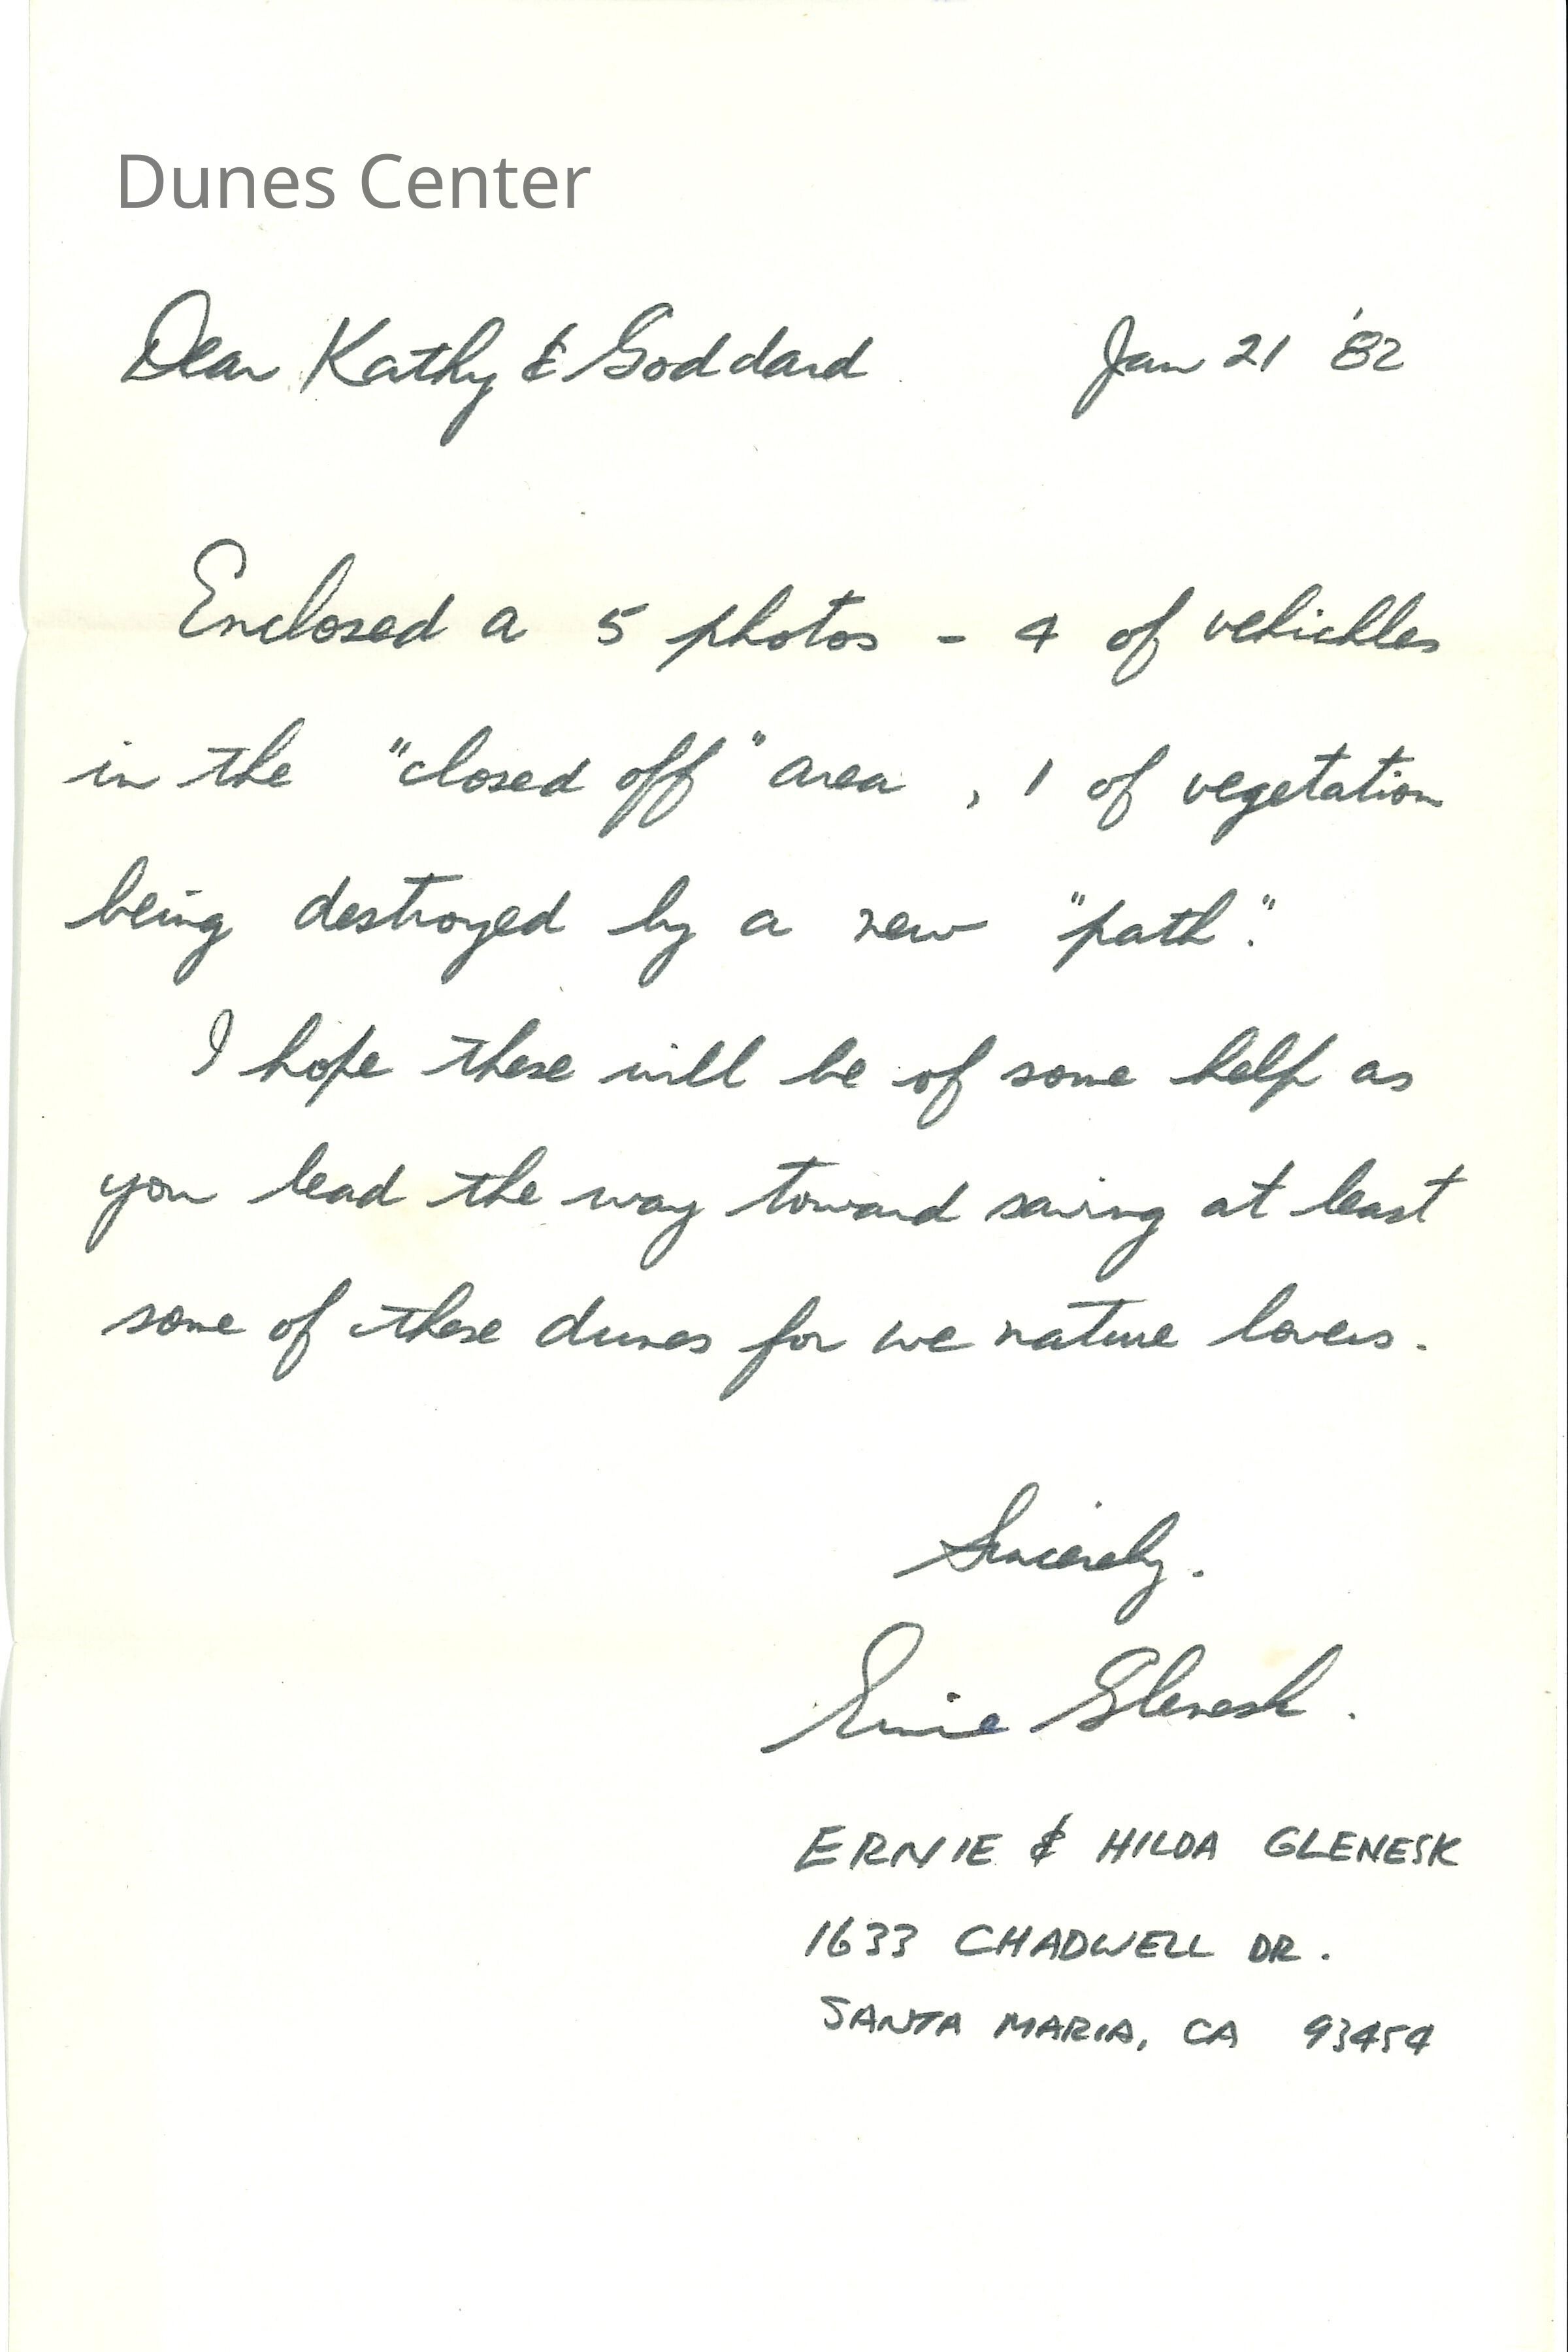 Dunes Center
Dear Kathy & Goddard Jan 21 '82
Enclosed a 5 photos - 4 of vehichles
in the "closed off" area, 1 of vegetation
being destroyed by a new "path".
I hope these will be of some help as
you lead the way toward saving at least
some of these dunes for we nature lovers.
Sincerely.
Ernie Glenesk.
ERNIE & HILDA GLENESK
1633 CHADWELL DR.
SANTA MARIA, CA 93454